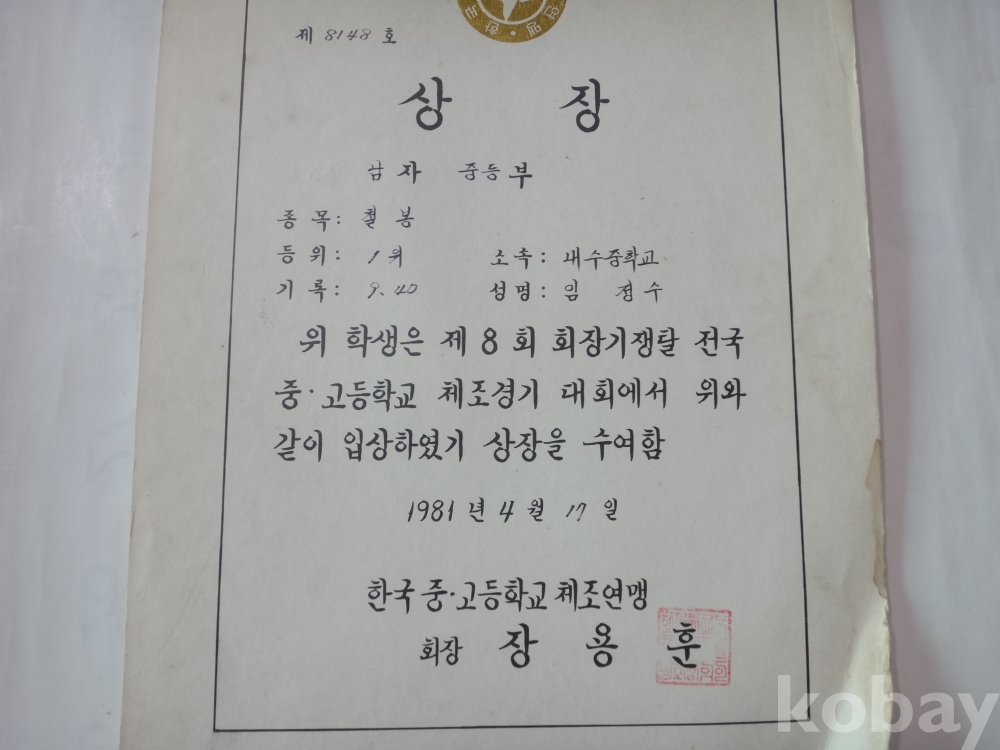 제 8148 호
상 장
남자 중등부
종목: 철봉
등위: 1위 소속: 내수중학교
기록: 9.40 성명: 임정수
위 학생은 제8회 회장기쟁탈 전국
중·고등학교 체조경기 대회에서 위와
같이 입상하였기 상장을 수여함
1981년 4월 17일
한국 중·고등학교 체조연맹
회장 장용훈
kobay